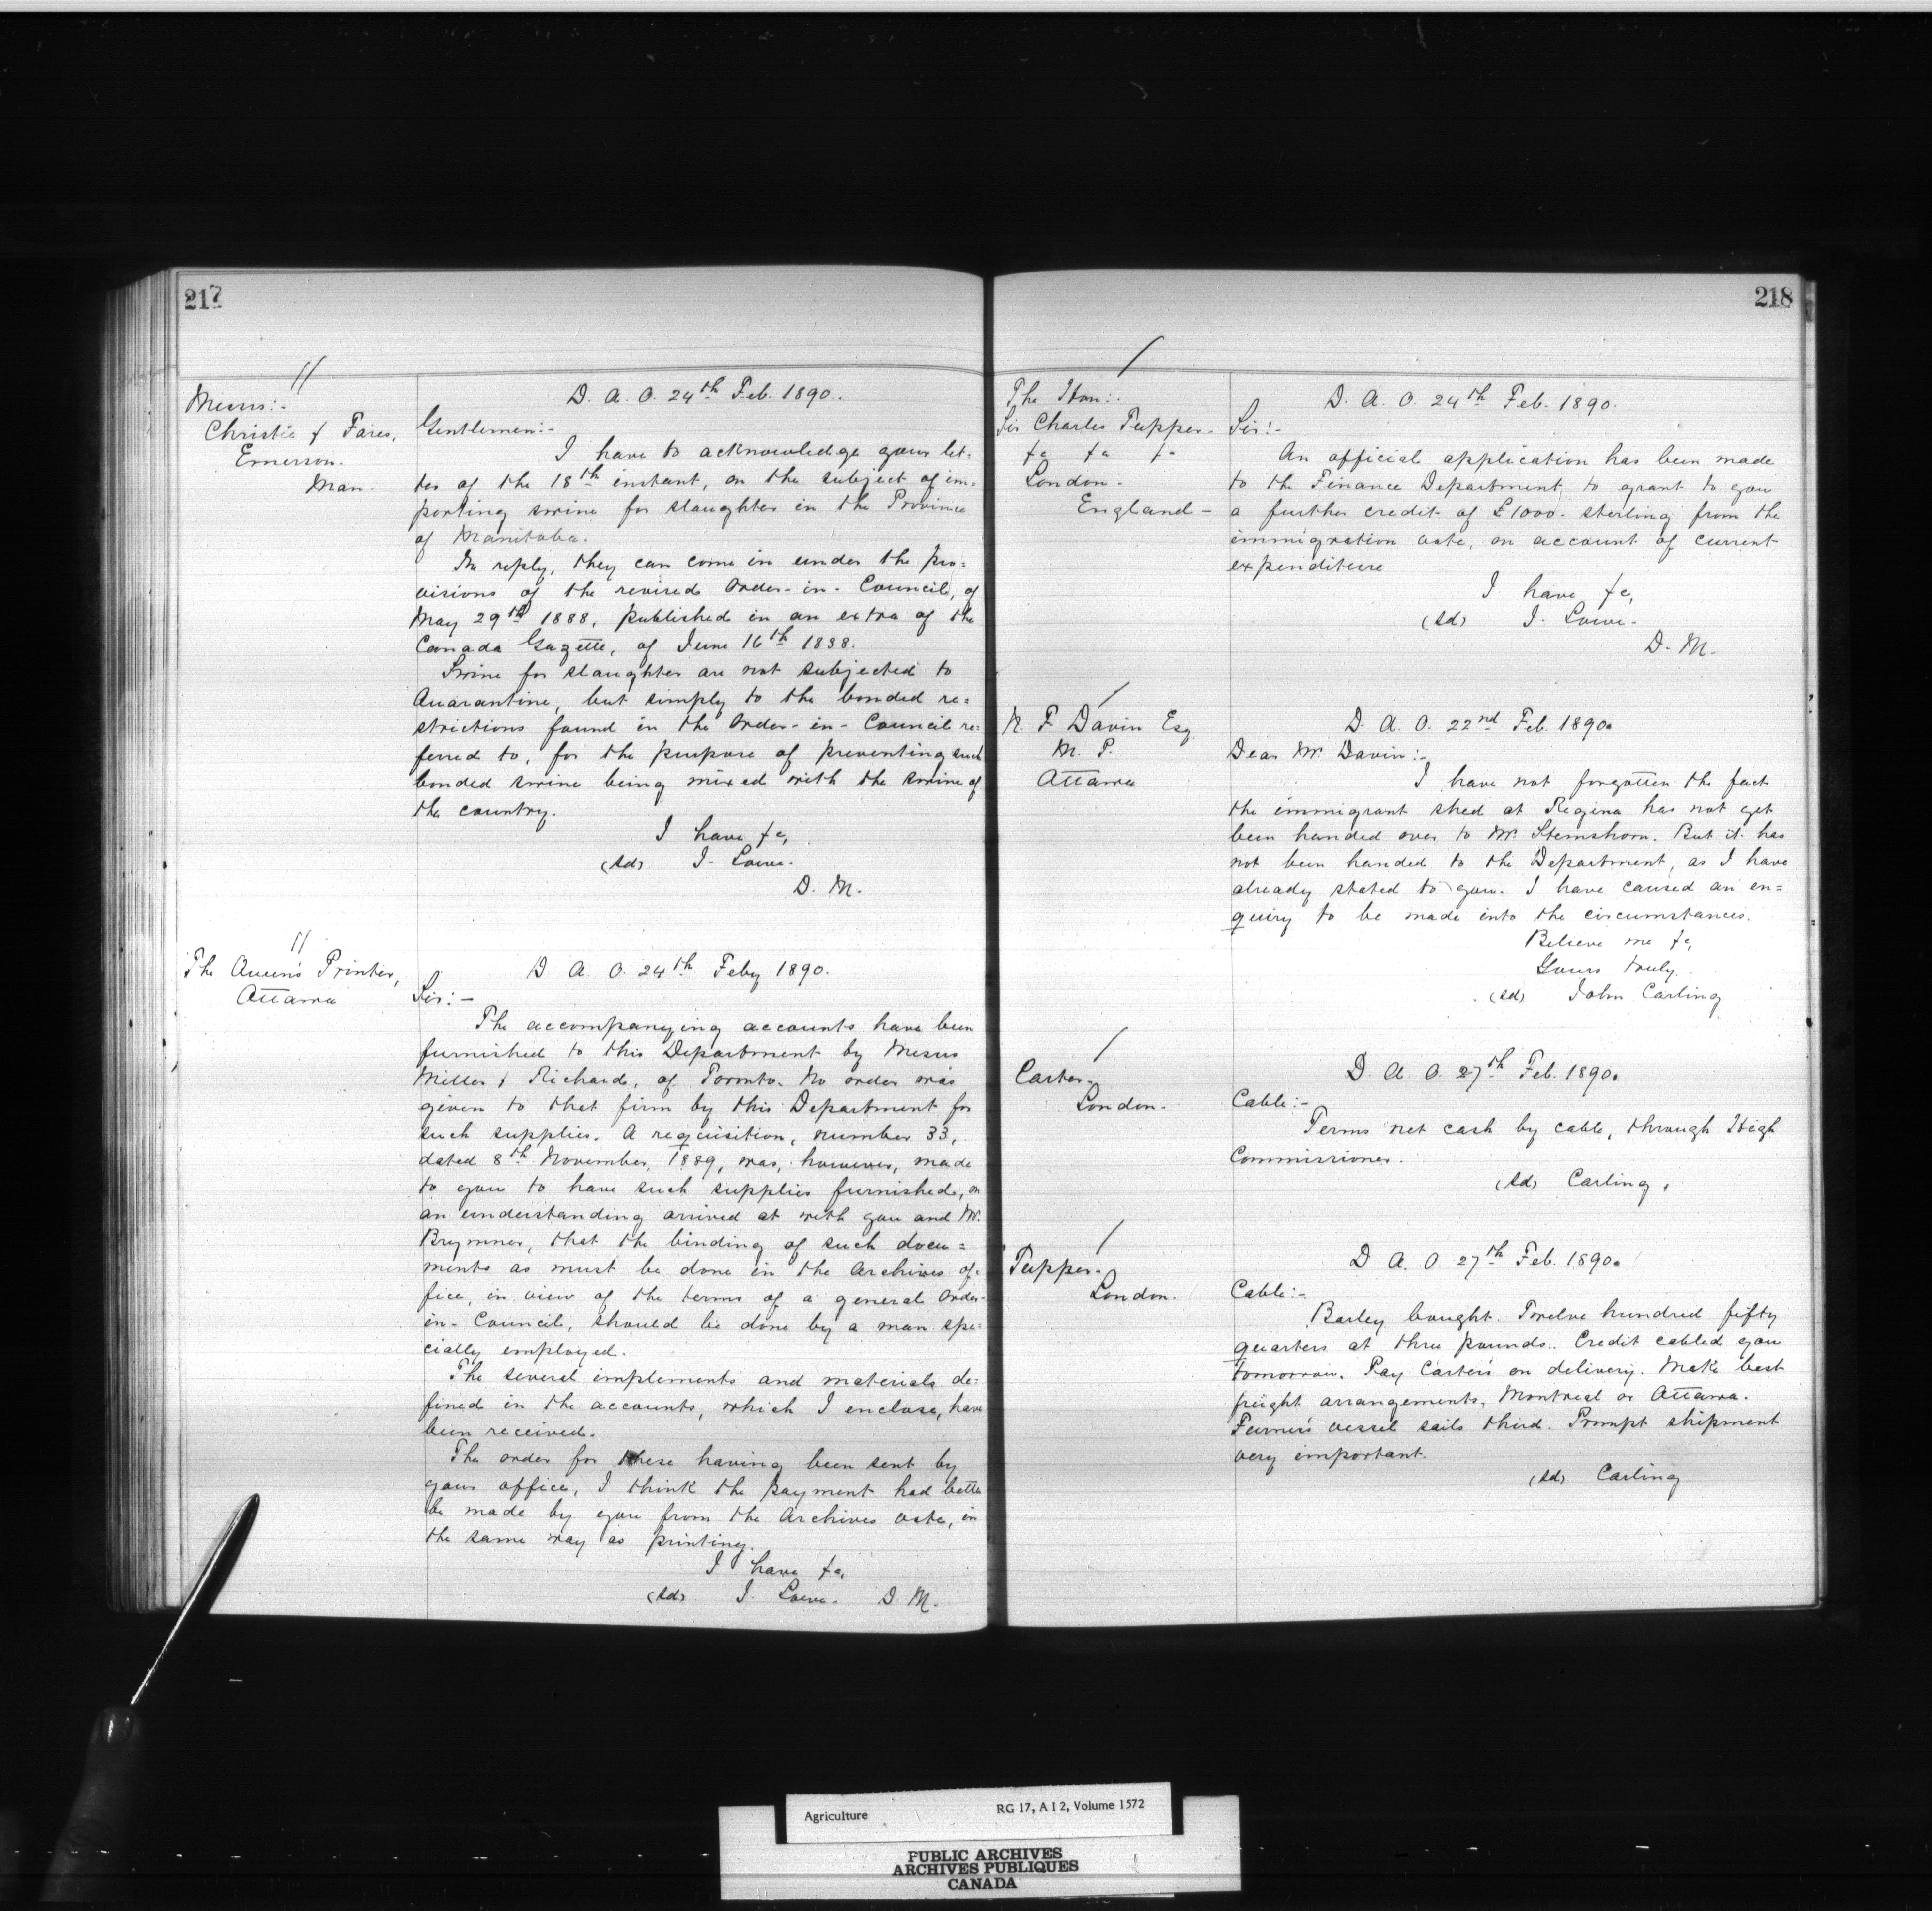 217
Messrs:-
Christie & Fares,
Emerson.
Man.
D. A. O. 24th Feb. 1890.
Gentlemen:-
I have to acknowledge your let=
ter of the 18th instant, on the subject of im=
porting swine for slaughter in the Province
of Manitoba.
In reply, they can come in under the pro=
visions of the revised Order-in-Council, of
May 29th 1888, published in an extra of the
Canada Gazette, of June 16th 1888.
Swine for slaughter are not subjected to
Quarantine, but simply to the bonded re=
strictions found in the Order-in-Council re=
ferred to, for the purpose of preventing such
bonded swine being mixed with the swine of
the country.
I have &c,
(sd) J. Lowe.
D. M.
The Queen's Printer,
Ottawa
D. A. O. 24th Feby 1890.
Sir:-
The accompanying accounts have been
furnished to this Department by Messrs
Miller & Richard, of Toronto. No order was
given to that firm by this Department for
such supplies. A requisition, number 33,
dated 8th November, 1889, was, however, made
to you to have such supplies furnished, on
an understanding arrived at with you and Mr.
Brymner, that the binding of such docu=
ments as must be done in the Archives of=
fice, in view of the terms of a general Order-
in-Council, should be done by a man spe=
cially employed.
The several implements and materials de=
fined in the accounts, which I enclose, have
been received.
The order for these having been sent by
your office, I think the payment had better
be made by you from the Archives vote, in
the same way as printing.
I have &c,
(sd) J. Lowe. D. M.
218
The Hon:.
Sir Charles Tupper.
&c &c &c
London.
England -
D. A. O. 24th Feb. 1890.
Sir:-
An official application has been made
to the Finance Department, to grant to you
a further credit of £1000. sterling from the
immigration vote, on account of current
expenditure
I have &c,
(sd) J. Lowe.
D. M.
N. F Davin Esq.
M. P.
Ottawa
D. A. O. 22nd Feb. 1890.
Dear Mr. Davin:-
I have not forgotten the fact
the immigrant shed at Regina has not yet
been handed over to Mr. Stemshorn. But it has
not been handed to the Department, as I have
already stated to you. I have caused an en=
quiry to be made into the circumstances.
Believe me &c,
Yours truly.
(sd) John Carling
Carter.
London.
D. A. O. 27th Feb. 1890.
Cable:-
Terms net cash by cable, through High
Commissioner.
(sd) Carling.
Tupper.
London.
D. A. O. 27th Feb. 1890.
Cable:-
Barley bought. Twelve hundred fifty
quarters at three pounds. Credit cabled you
tomorrow. Pay Carter's on delivery. Make best
freight arrangements, Montreal or Ottawa.
Furness vessel sails third. Prompt shipment
very important.
(sd) Carling
Agriculture
RG 17, A I 2, Volume 1572
PUBLIC ARCHIVES
ARCHIVES PUBLIQUES
CANADA